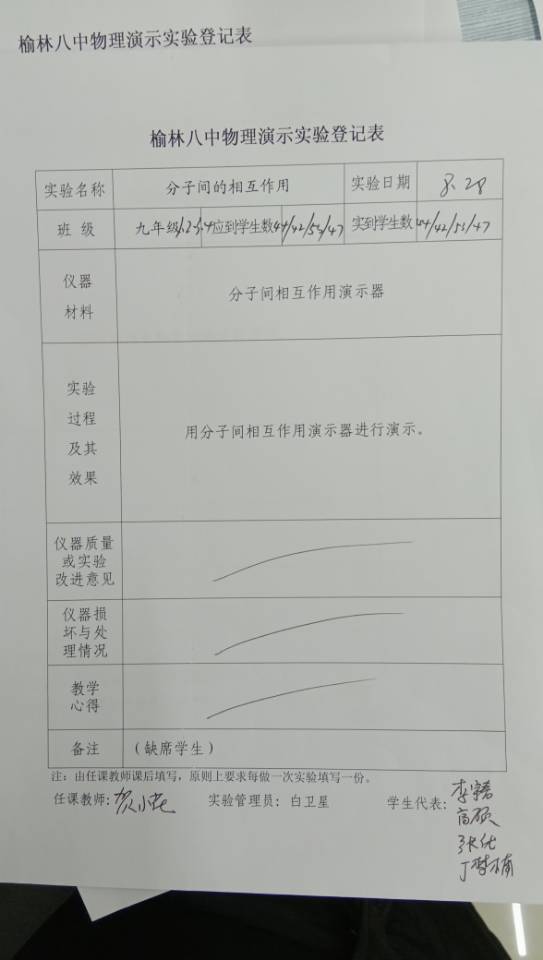 榆林八中物理演示实验登记表
榆林八中物理演示实验登记表
实验名称 分子间的相互作用 实验日期 8.28
班 级 九年级 应到学生数44/42/53/47 实到学生数44/42/53/47
仪器
材料
分子间相互作用演示器
实验
过程
及其
效果
用分子间相互作用演示器进行演示。
仪器质量
或实验
改进意见
仪器损
坏与处
理情况
教学
心得
备注 (缺席学生)
注:由任课教师课后填写,原则上要求每做一次实验填写一份。
任课教师: 实验管理员:白卫星 学生代表: